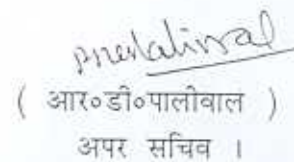 ( आर०डी०पालीवाल )
अपर सचिव ।